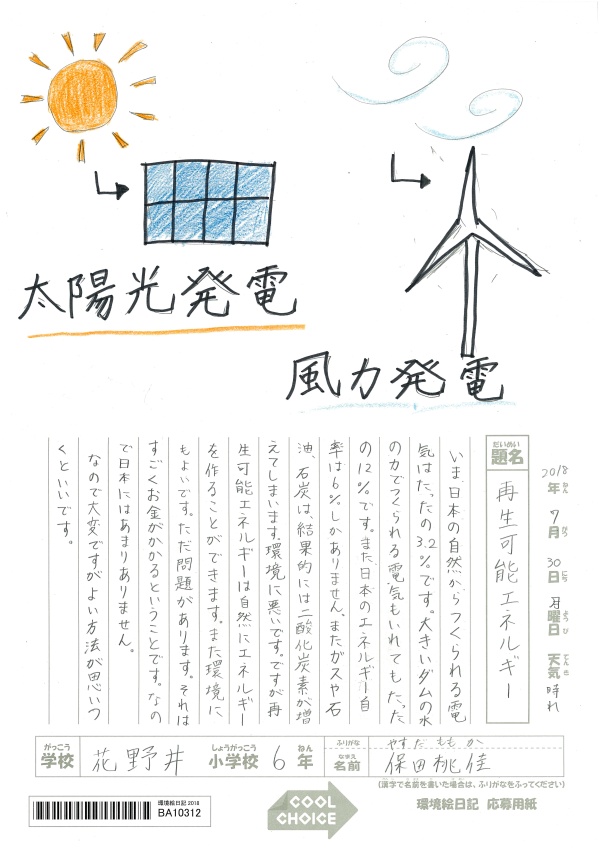 太陽光発電
風力発電
2018年ねん 7月がつ 30日にち 月曜日ようび 天気てんき 晴れ
題名だいめい 再生可能エネルギー
いま、日本の自然からつくられる電
気はたったの3.2%です。大きいダムの水
の力でつくられる電気もいれてもたった
の12%です。また、日本のエネルギー自
率は6%しかありません。またガスや石
油、石炭は、結果的には二酸化炭素が増
えてしまいます。環境に悪いです。ですが再
生可能エネルギーは自然にエネルギー
を作ることができます。また環境に
もよいです。ただ問題があります。それは
すごくお金がかかるということです。なの
で日本にはあまりありません。
なので大変ですがよい方法が思いつ
くといいです。
がっこう 学校 花野井 しょうがっこう 小学校 6 ねん 年
ふりがな やすだ ももか
なまえ 名前 保田桃佳
(漢字で名前を書いた場合は、ふりがなをふってください)
環境絵日記 2018
BA10312
COOL
CHOICE
環境絵日記 応募用紙